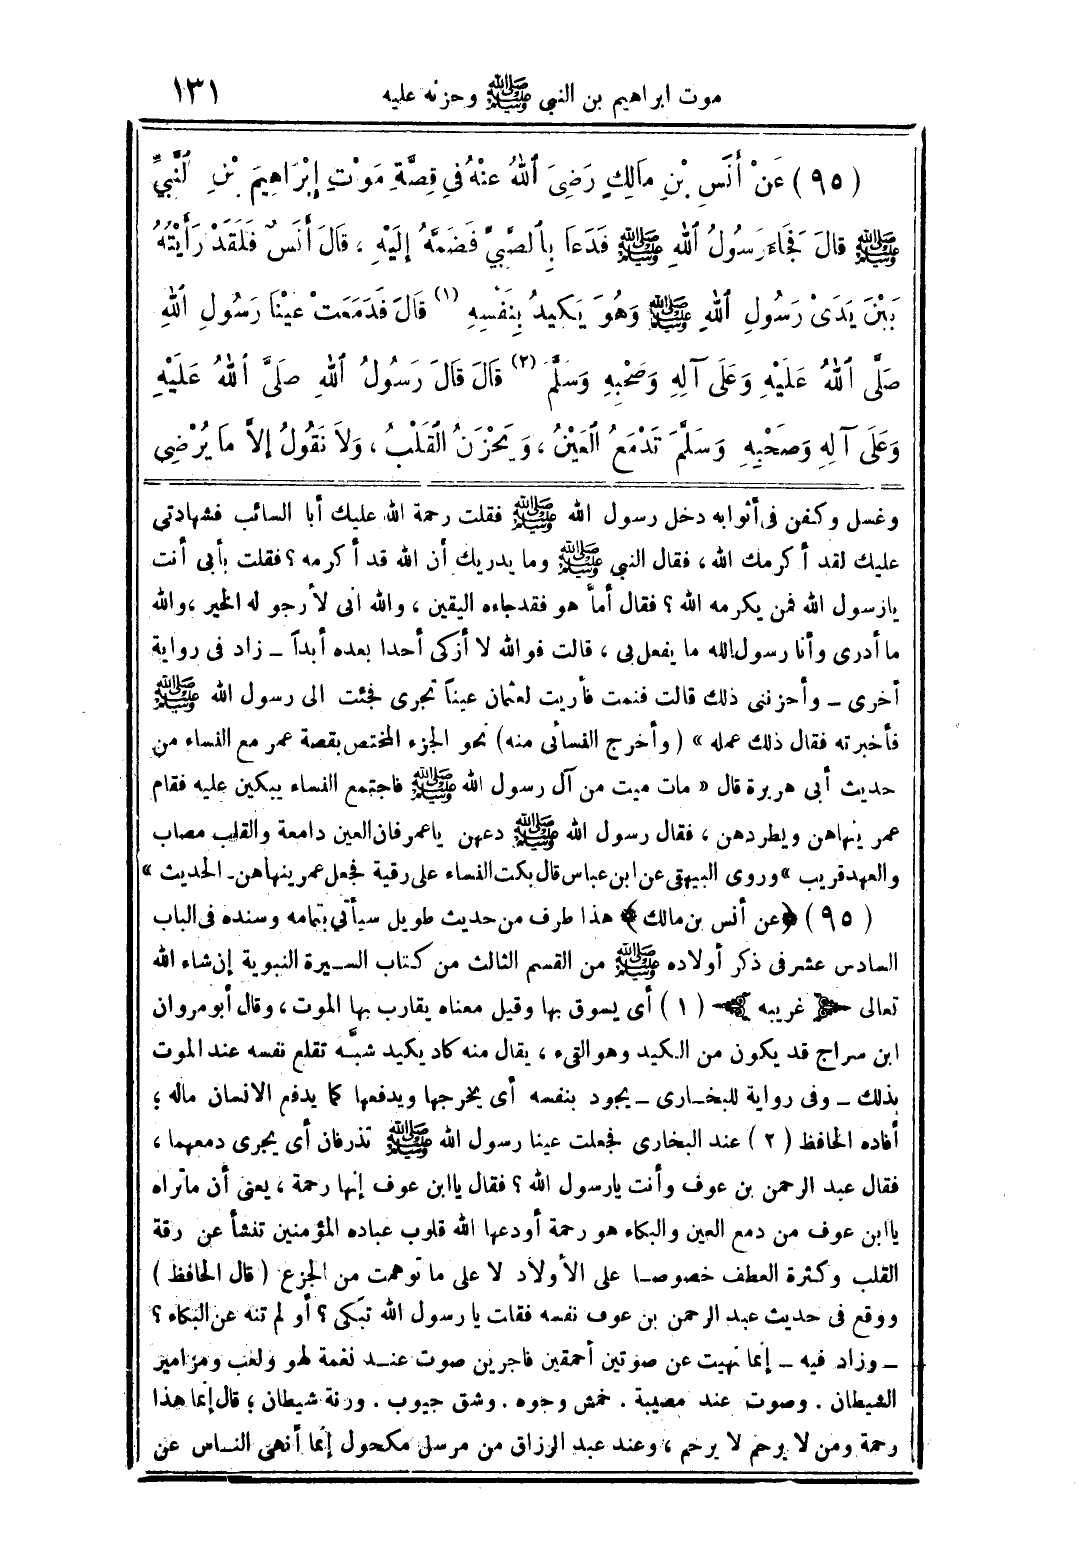 موت ابراهيم بن النبي ﷺ وحزنه عليه ١٣١
(٩٥) عَنْ أَنَسِ بْنِ مَالِكٍ رَضِىَ ٱللهُ عَنْهُ فِي قِصَّةِ مَوْتِ إِبْرَاهِيمَ بْنِ ٱلنَّبِيِّ
ﷺ قَالَ فَجَاءَ رَسُولُ ٱللهِ ﷺ فَدَعَا بِٱلصَّبِيِّ فَضَمَّهُ إِلَيْهِ، قَالَ أَنَسٌ فَلَقَدْ رَأَيْتُهُ
بَيْنَ يَدَىْ رَسُولِ ٱللهِ ﷺ وَهُوَ يَكِيدُ بِنَفْسِهِ (١) قَالَ فَدَمَعَتْ عَيْنَا رَسُولِ ٱللهِ
صَلَّى ٱللهُ عَلَيْهِ وَعَلَى آلِهِ وَصَحْبِهِ وَسَلَّمَ (٢) قَالَ قَالَ رَسُولُ ٱللهِ صَلَّى ٱللهُ عَلَيْهِ
وَعَلَى آلِهِ وَصَحْبِهِ وَسَلَّمَ تَدْمَعُ ٱلْعَيْنُ، وَيَحْزَنُ ٱلْقَلْبُ، وَلاَ نَقُولُ إِلاَّ مَا يُرْضِي
وغسل وكفن فى أثوابه دخل رسول الله ﷺ فقلت رحمة الله عليك أبا السائب فشهادتي
عليك لقد أكرمك الله، فقال النبي ﷺ وما يدريك أن الله قد أكرمه؟ فقلت بأبى أنت
يارسول الله فمن يكرمه الله؟ فقال أماَّ هو فقد جاءه اليقين، والله انى لأرجو له الخير، والله
ما أدرى وأنا رسول الله ما يفعل بى، قالت فوالله لا أزكى أحدا بعده أبداً ــ زاد فى رواية
أخرى ــ وأحزننى ذلك قالت فنمت فأريت لعثمان عيناً تجرى فجئت الى رسول الله ﷺ
فأخبرته فقال ذلك عمله » (وأخرج النسائى منه) نحو الجزء المختص بقصة عمر مع النساء من
حديث أبى هريرة قال « مات ميت من آل رسول الله ﷺ فاجتمع النساء يبكين عليه فقام
عمر ينهاهن ويطردهن، فقال رسول الله ﷺ دعهن ياعمر فان العين دامعة والقلب مصاب
والعهد قريب » وروى البيهقى عن ابن عباس قال بكت النساء على رقية فجعل عمر ينهاهن ـ الحديث »
(٩٥) ﴿عن أنس بن مالك﴾ هذا طرف من حديث طويل سيأتى بتمامه وسنده فى الباب
السادس عشر فى ذكر أولاده ﷺ من القسم الثالث من كتاب السـيرة النبوية إن شاء الله
تعالى ﴿ غريبه ﴾ (١) أى يسوق بها وقيل معناه يقارب بها الموت، وقال أبو مروان
ابن سراج قد يكون من الكيد وهو القىء، يقال منه كاد يكيد شبَّه تقلع نفسه عند الموت
بذلك ــ وفى رواية للبخـارى ــ يجود بنفسه أى يخرجها ويدفعها كما يدفع الانسان ماله؛
أفاده الحافظ (٢) عند البخارى فجعلت عينا رسول الله ﷺ تذرفان أى يجرى دمعهما،
فقال عبد الرحمن بن عوف وأنت يارسول الله؟ فقال ياابن عوف إنها رحمة، يعنى أن ماتراه
ياابن عوف من دمع العين والبكاء هو رحمة أودعها الله قلوب عباده المؤمنين تنشأ عن رقة
القلب وكثرة العطف خصوصـا على الأولاد لا على ما توهمت من الجزع (قال الحافظ)
ووقع فى حديث عبد الرحمن بن عوف نفسه فقلت يا رسول الله تبكى؟ أو لم تنه عن البكاء؟
ــ وزاد فيه ــ إنما نهيت عن صوتين أحمقين فاجرين صوت عنـد نغمة لهو ولعب ومزامير
الشيطان. وصوت عند مصيبة. خمش وجوه. وشق جيوب. ورنة شيطان؛ قال إنما هذا
رحمة ومن لا يرحم لا يرحم، وعند عبد الرزاق من مرسل مكحول إنما أنهى النـاس عن